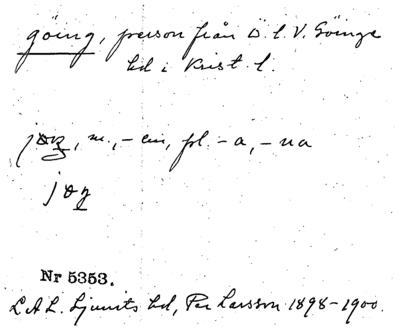 göing, person från Ö. l. V. Göinge
hd i Krist. l.
jøŋ, m., -en, pl. -a, -na
jøŋ
Nr 5353.
L.A.L. Ljunits hd, Per Larsson 1898-1900.